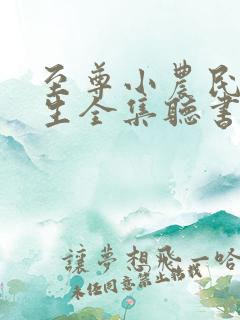 至尊小農民
生全集聽書
讓夢想飛一哈
未经同意禁止转载